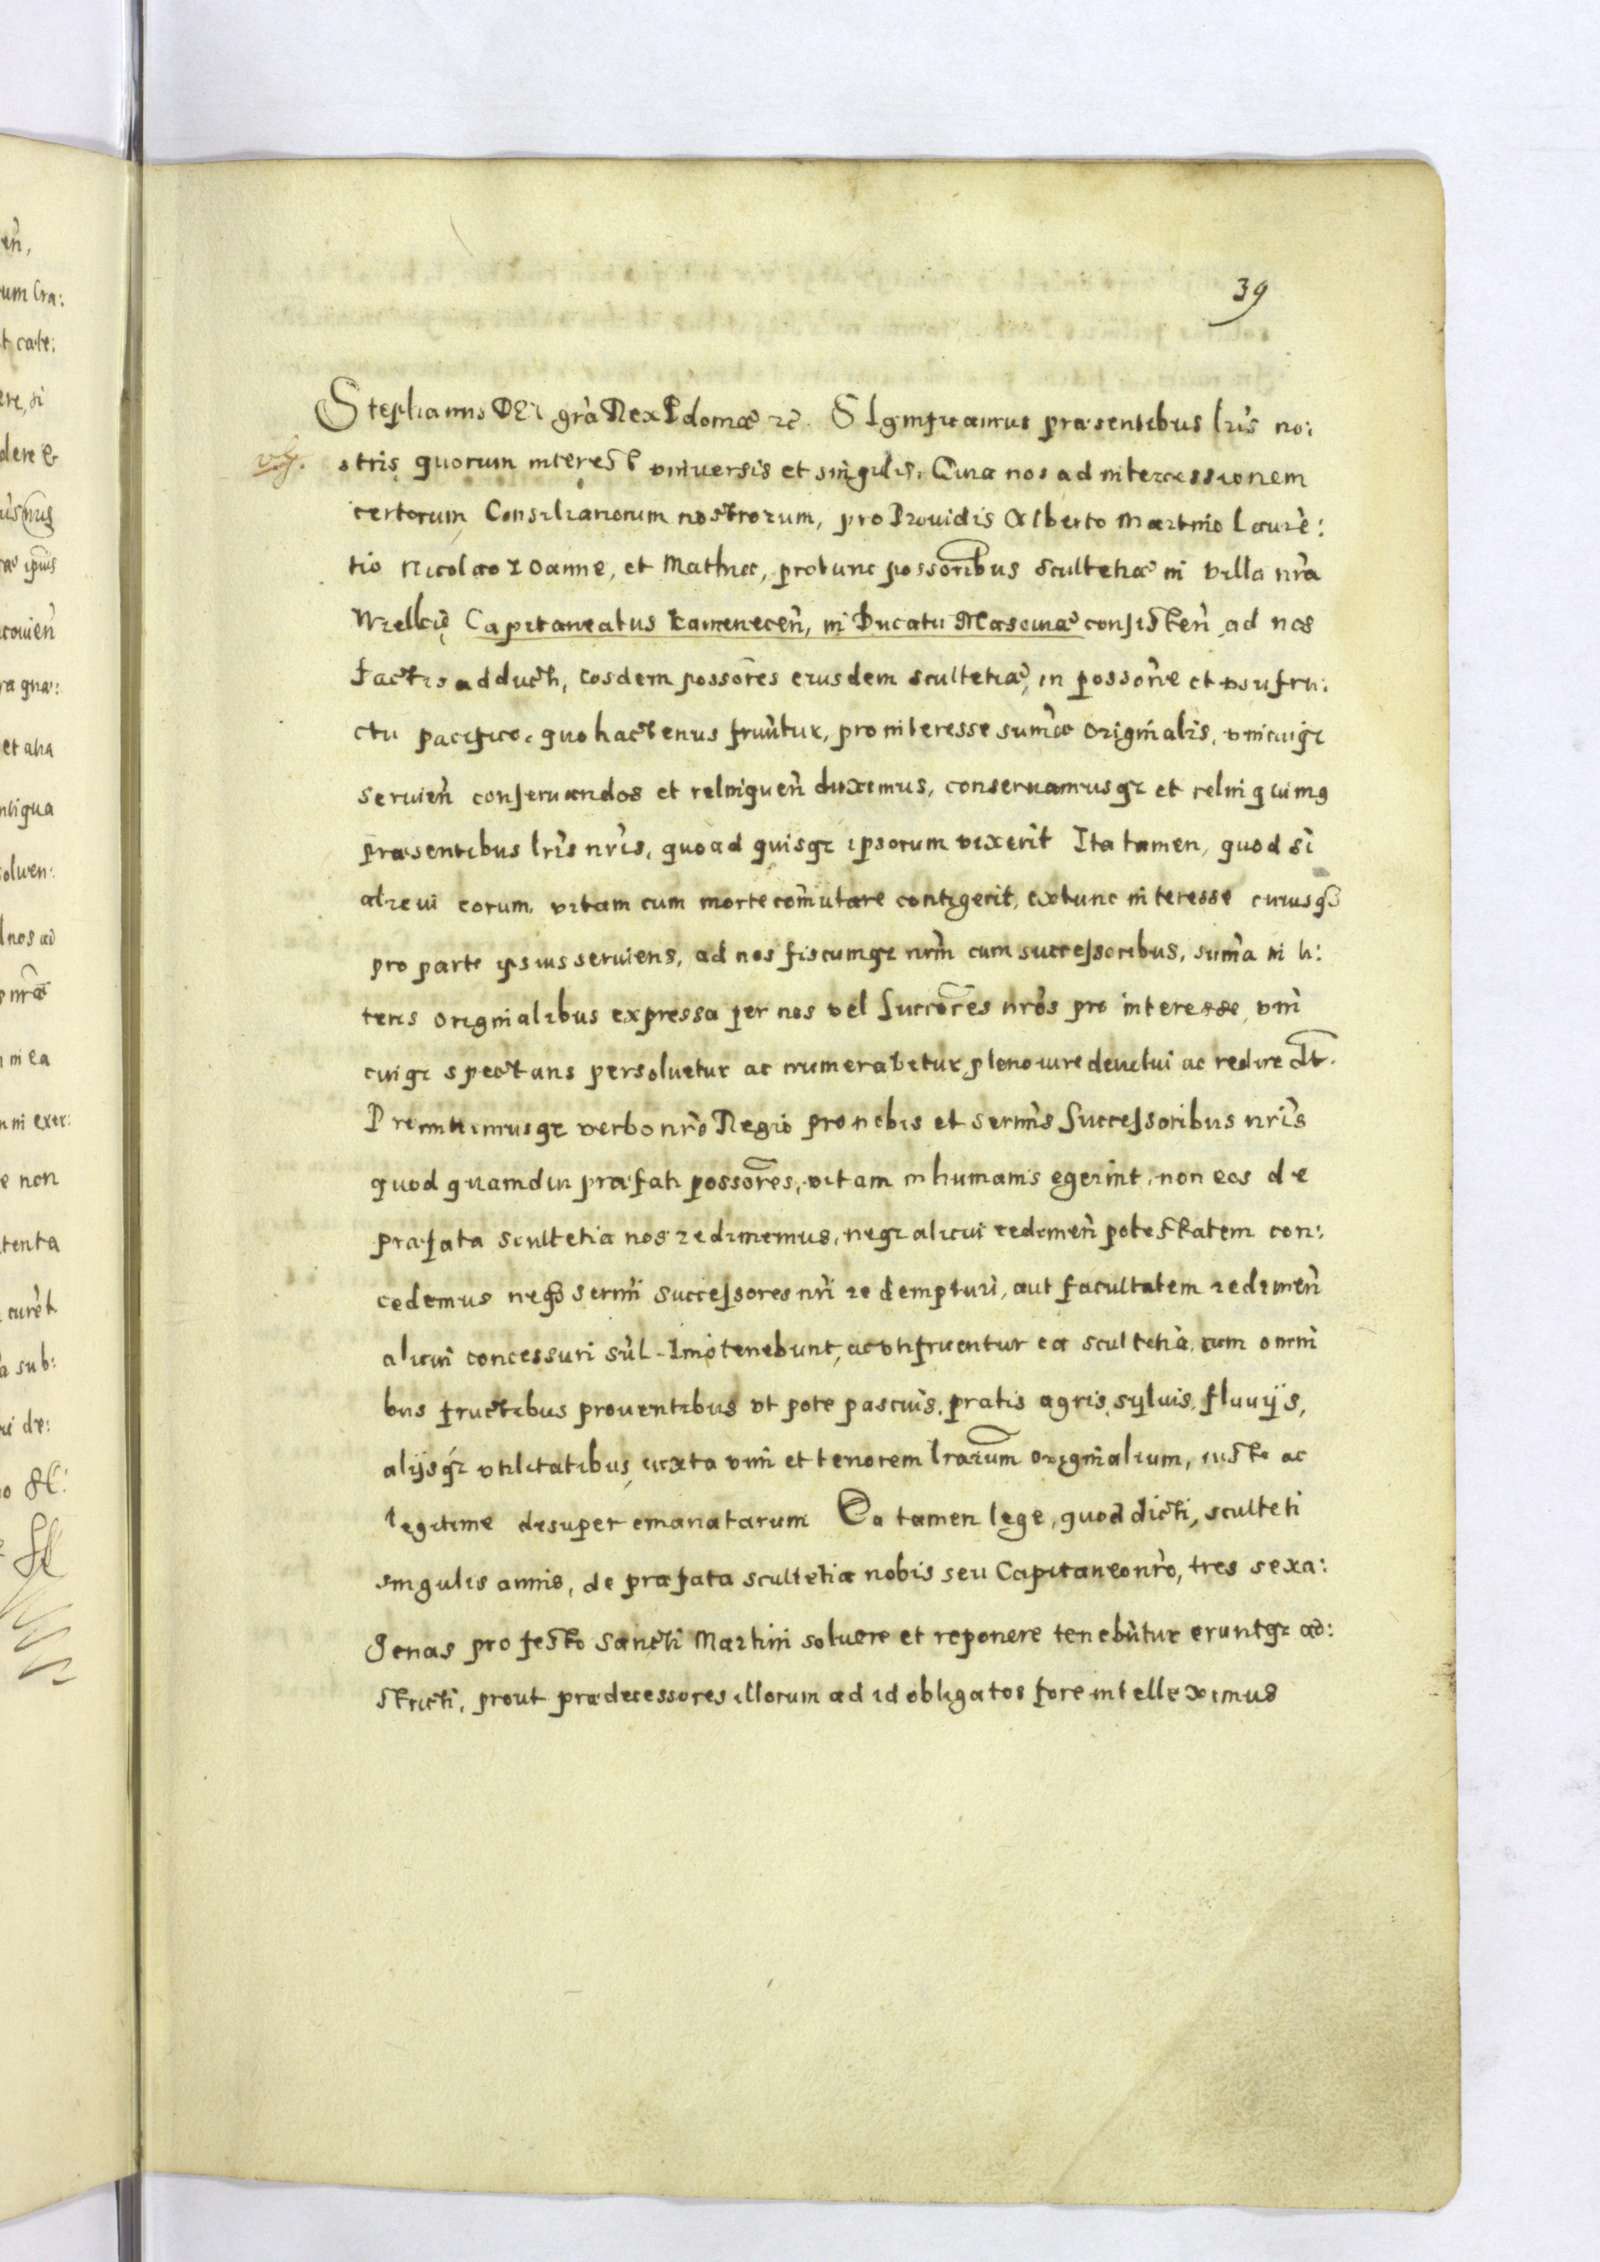 39
Stephanus DEI grã Rex Pdomæ rc. SIgnificamus præsentibus lrîs no:
stris quorum interest vniversis et singulis. Quia nos ad intercessionem
certorum Consiliariorum nostrorum, pro Providis Alberto Martino Laurē:
tio Nicolao Ioanne, et Mathia, protunc possoribus scultetiæ in villa nrã
Wielkie Capitaneatus Camenecen̄, in Ducatu Masouiæ consisten̄ ad nos
factis adducti, eosdem possores eiusdem scultetiæ, in possorie et vsufru:
ctu pacifico, quo hactenus fruūtur, pro interesse sum̄æ originalis, vnicuiqꝫ
seruien̄ conseruandos et relinquen̄ duximus, conseruamusqꝫ et relinquimꝰ
præsentibus lrîs nrîs, quoad quisqꝫ ipsorum vixerit Ita tamen, quod si
alicui eorum, vitam cum morte com̄utare contigerit, extunc interesse cuiusqꝫ
pro parte ipsius seruiens, ad nos fiscumqꝫ nrm̄ cum successoribus, sum̄a in li:
teris originalibus expressa per nos vel Successores nrōs pro interesse vni
cuiqꝫ spectans persoluetur ac numerabitur pleno iure deuolui ac redire dt̄.
Promittimusqꝫ verbo nrō Regio pro nobis et serm̄is Successoribus nrīs
quod quamdiu præfati possores, vitam in humanis egerint, non eos de
præfata scultetia nos redimemus, neqꝫ alicui redimen̄ potestatem con:
cedemus neqꝫ serm̄i successores nrī redempturi, aut facultatem redimen̄
alicui concessuri sūt. Imo tenebunt, ac vtifruentur ea scultetia, cum omni
bus fructibus prouentibus vt pote pascuis, pratis agris, syluis, fluuijs,
alijsqꝫ vtilitatibus iuxta vim et tenorem lrarum originalium, iuste ac
legitime desuper emanatarum Ea tamen lege, quod dicti, sculteti
singulis annis, de præfata scultetia nobis seu Capitaneo nrō, tres sexa:
genas pro festo Sancti Martini soluere et reponere tenebūtur eruntqꝫ ad:
stricti, prout prædecessores illorum ad id obligatos fore intelleximus